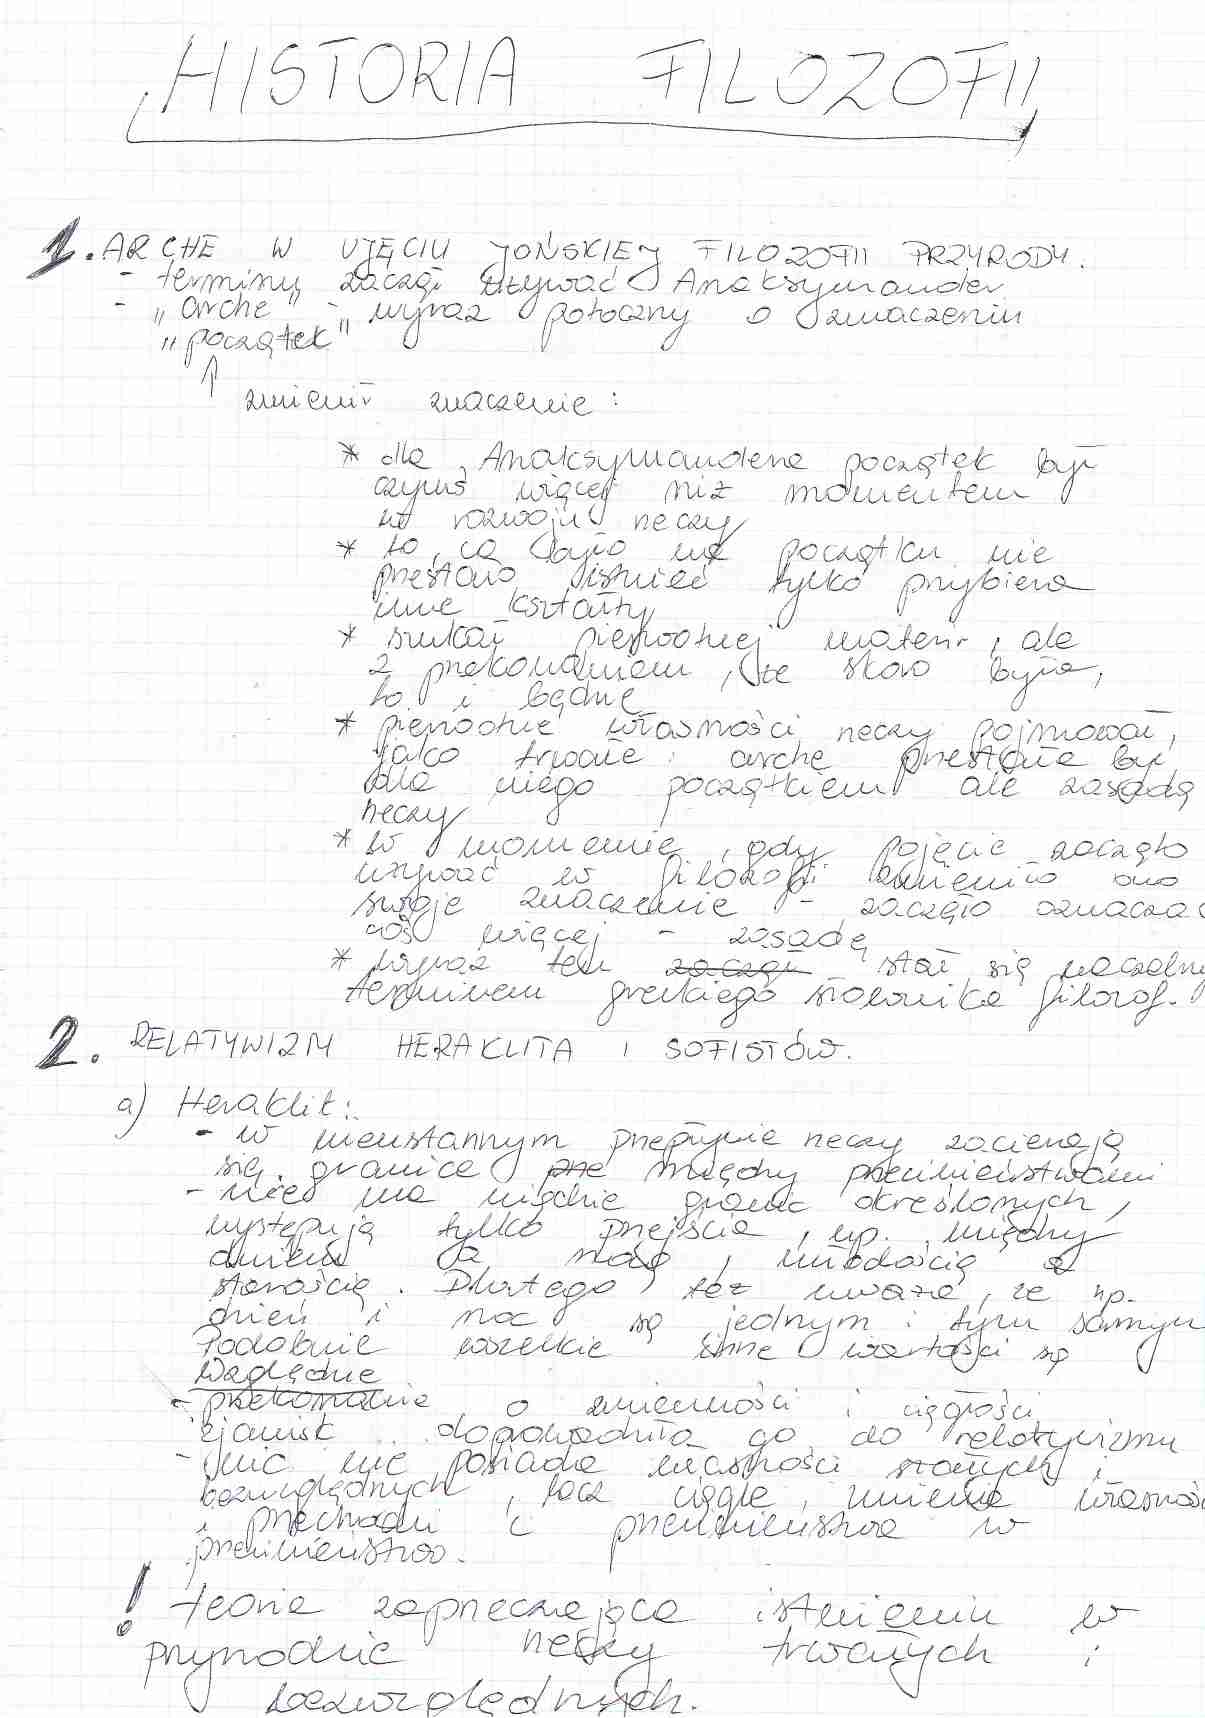 HISTORIA FILOZOFII
1. ARCHE W UJĘCIU JOŃSKIEJ FILOZOFII PRZYRODY.
- terminu zaczął używać Anaksymander
- "arche" - wyraz potoczny o znaczeniu
"początek"
↑
zmienił znaczenie:
* dla Anaksymandera początek był
czymś więcej niż momentem
w rozwoju rzeczy
* to, co było na początku nie
przestało istnieć tylko przybiera
inne kształty
* szukał pierwotnej materii, ale
z przekonaniem, że skoro była,
to i będzie
* pierwotne własności rzeczy pojmował,
jako trwałe; arche przestała być
dla niego początkiem ale zasadą
rzeczy
* w momencie, gdy pojęcie zaczęto
używać w filozofii zmieniło ono
swoje znaczenie - zaczęło oznaczać
coś więcej - zasadę
* wyraz ten zaczął stał się naczelny
terminem greckiego słownika filozof.
2. RELATYWIZM HERAKLITA I SOFISTÓW.
a) Heraklit:
- w nieustannym przepływie rzeczy zacierają
się granice prze między przeciwieństwami
- nie ma nigdzie granic określonych,
występują tylko przejścia, np. między
dniem a nocą, młodością a
starością. Dlatego też uważa, że np.
dzień i noc są jednym i tym samym
Podobnie wszelkie inne wartości są
względne
- przekonanie o zmienności i ciągłości
zjawisk doprowadziła go do relatywizmu
- nic nie posiada własności stałych i
bezwzględnych, lecz ciągle zmienia własnoś
i przechodzi z przeciwieństwa w
przeciwieństwo.
! teoria zaprzeczająca istnieniu w
przyrodzie rzeczy trwałych i
bezwzględnych.